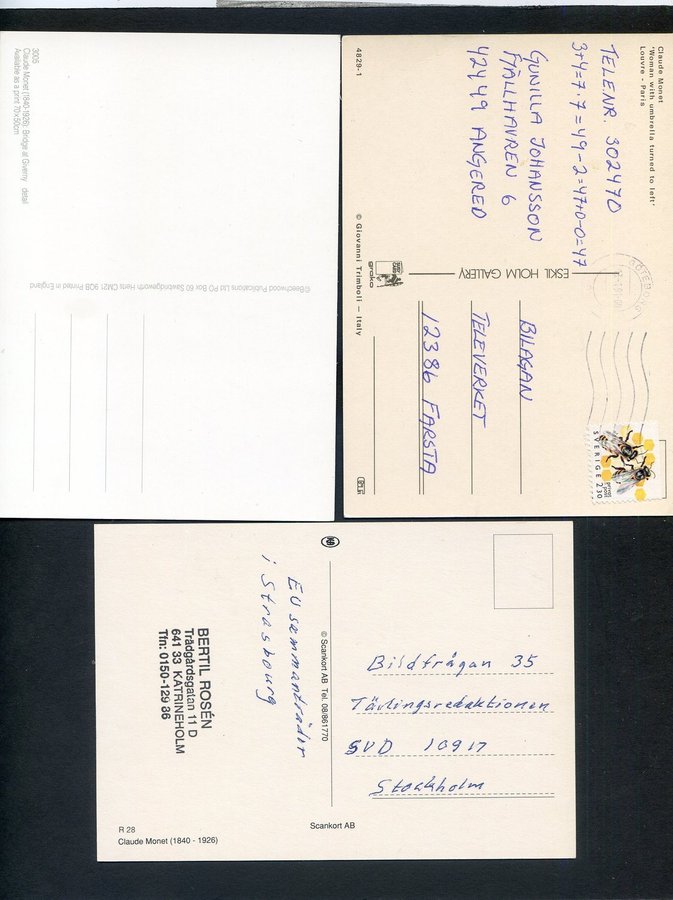 3005
Claude Monet (1840-1926) Bridge at Giverny detail
Available as a print 70x50cm
©Beechwood Publications Ltd PO Box 60 Sawbridgeworth Herts CM21 9OB Printed in England
Claude Monet
'Woman with umbrella turned to left'
Louvre - Paris
TELE.NR. 302470
3+4=7·7=49-2=47+0-0=47
GUNILLA JOHANSSON
FJÄLLHAVREN 6
42449 ANGERED
4829-1
ESKIL HOLM GALLERY
groko
© Giovanni Trimboli — Italy
BILAGAN
TELEVERKET
12386 FARSTA
SVERIGE 230
EU sammanträder
i Strasbourg
BERTIL ROSÉN
Trädgårdsgatan 11 D
641 33 KATRINEHOLM
Tfn: 0150-129 86
© Scankort AB Tel. 08/861770
Bildfrågan 35
Tävlingsredaktionen
SVD 10917
Stockholm
R 28
Claude Monet (1840 - 1926)
Scankort AB